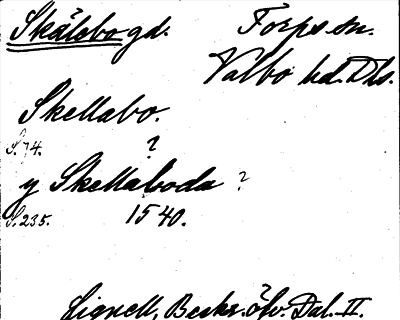 Skälebo gd. Torps sn.
Valbo hd. Dls.
Skellabo.
S. 74. ?
y Skellaboda ?
S. 235. 1540.
Lignell, Beskr. öfv. Dal. II.